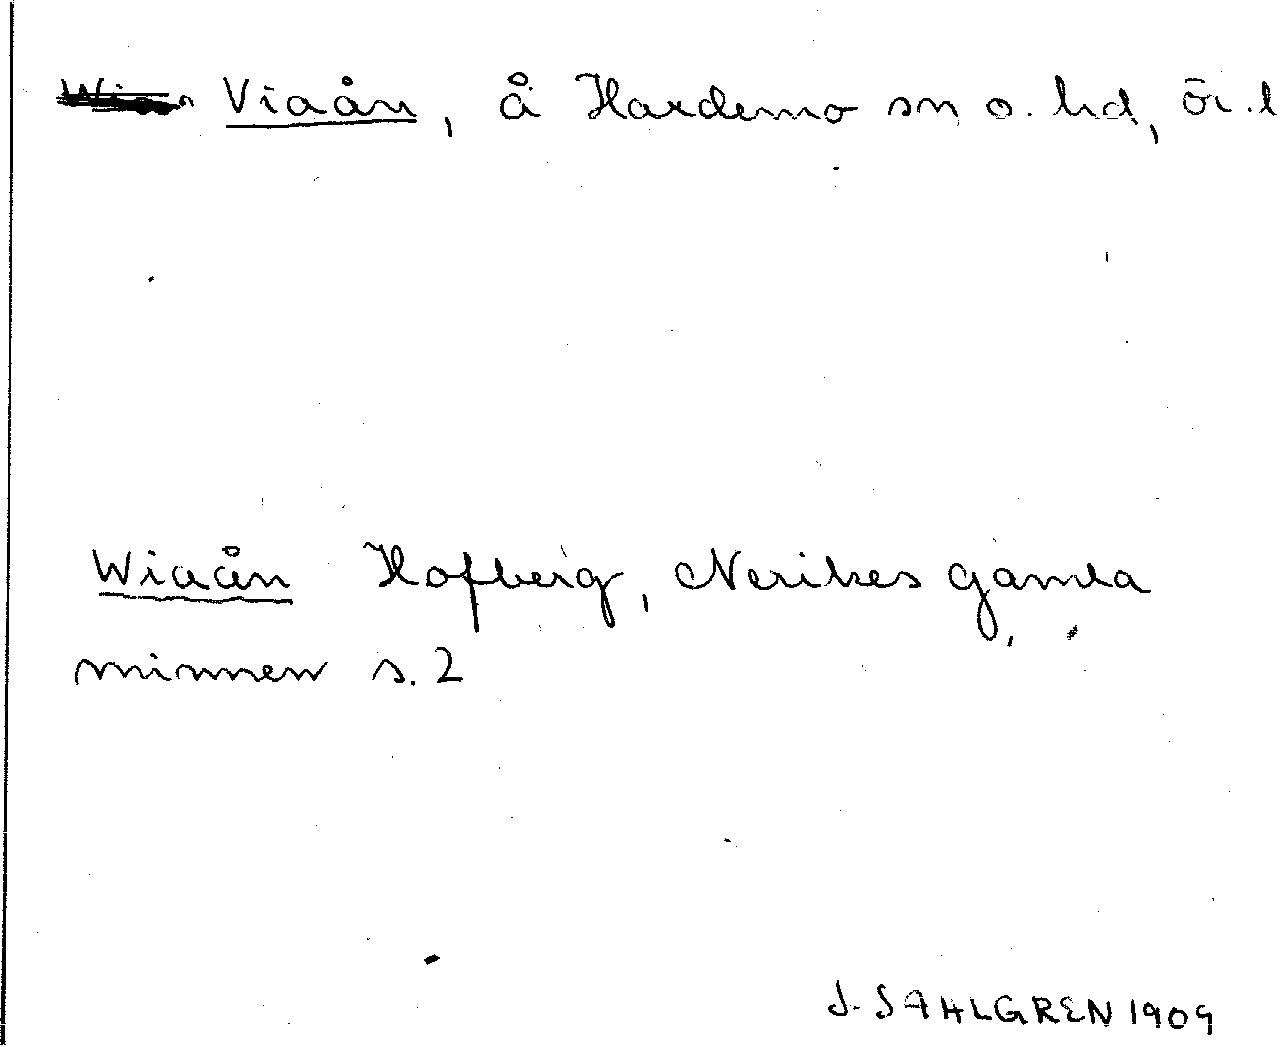 Viaån, å Hardemo sn o. hd, Ör. l
Wiaån Hofberg, Nerikes gamla
minnen s. 2
J. SAHLGREN 1909